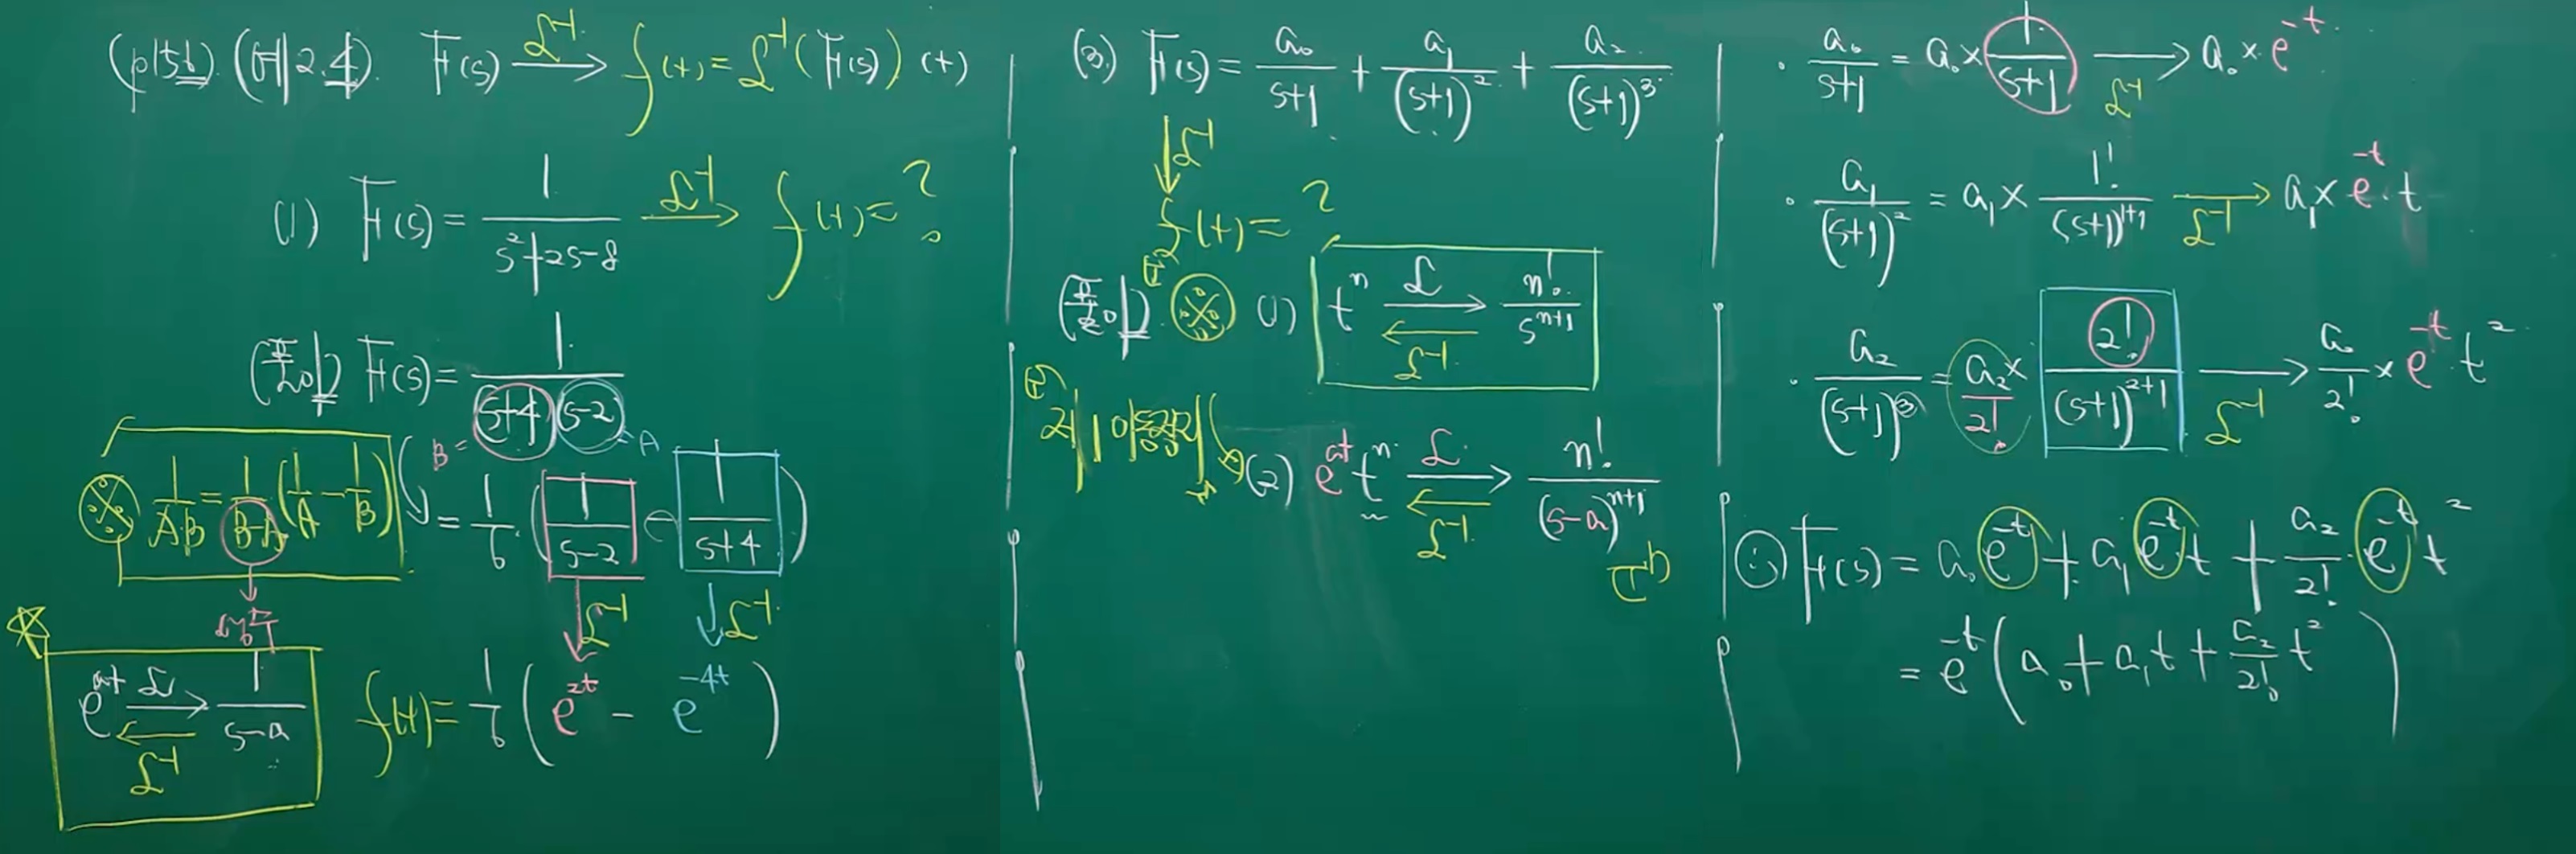 (p156) (예 2.4) F(s) ℒ⁻¹→ f(t) = ℒ⁻¹(F(s))(t)
(1) F(s) = 1/(s²+2s-8) ℒ⁻¹→ f(t) = ?
(풀이) F(s) = 1/((s+4)(s-2))
B= =A
※ 1/(A·B) = 1/(B-A) (1/A - 1/B)
= 1/6 · (1/(s-2) - 1/(s+4))
↓ℒ⁻¹ ↓ℒ⁻¹
e^{at} ℒ→ ←ℒ⁻¹ 1/(s-a)
f(t) = 1/6 (e^{2t} - e^{-4t})
(3) F(s) = a₀/(s+1) + a₁/(s+1)² + a₂/(s+1)³
↓ℒ⁻¹
f(t) = ?
(풀이) ※ (1) tⁿ ℒ→ ←ℒ⁻¹ n!/s^{n+1}
(2) e^{at} tⁿ ℒ→ ←ℒ⁻¹ n!/(s-a)^{n+1}
· a₀/(s+1) = a₀ × 1/(s+1) →ℒ⁻¹ a₀ × e^{-t}
· a₁/(s+1)² = a₁ × 1!/(s+1)^{1+1} →ℒ⁻¹ a₁ × e^{-t} · t
· a₂/(s+1)³ = a₂/2! × 2!/(s+1)^{2+1} →ℒ⁻¹ a₀/2! × e^{-t} · t²
∴ F(s) = a₀ e^{-t} + a₁ e^{-t} t + a₂/2! · e^{-t} t²
= e^{-t} (a₀ + a₁t + a₂/2! t²)